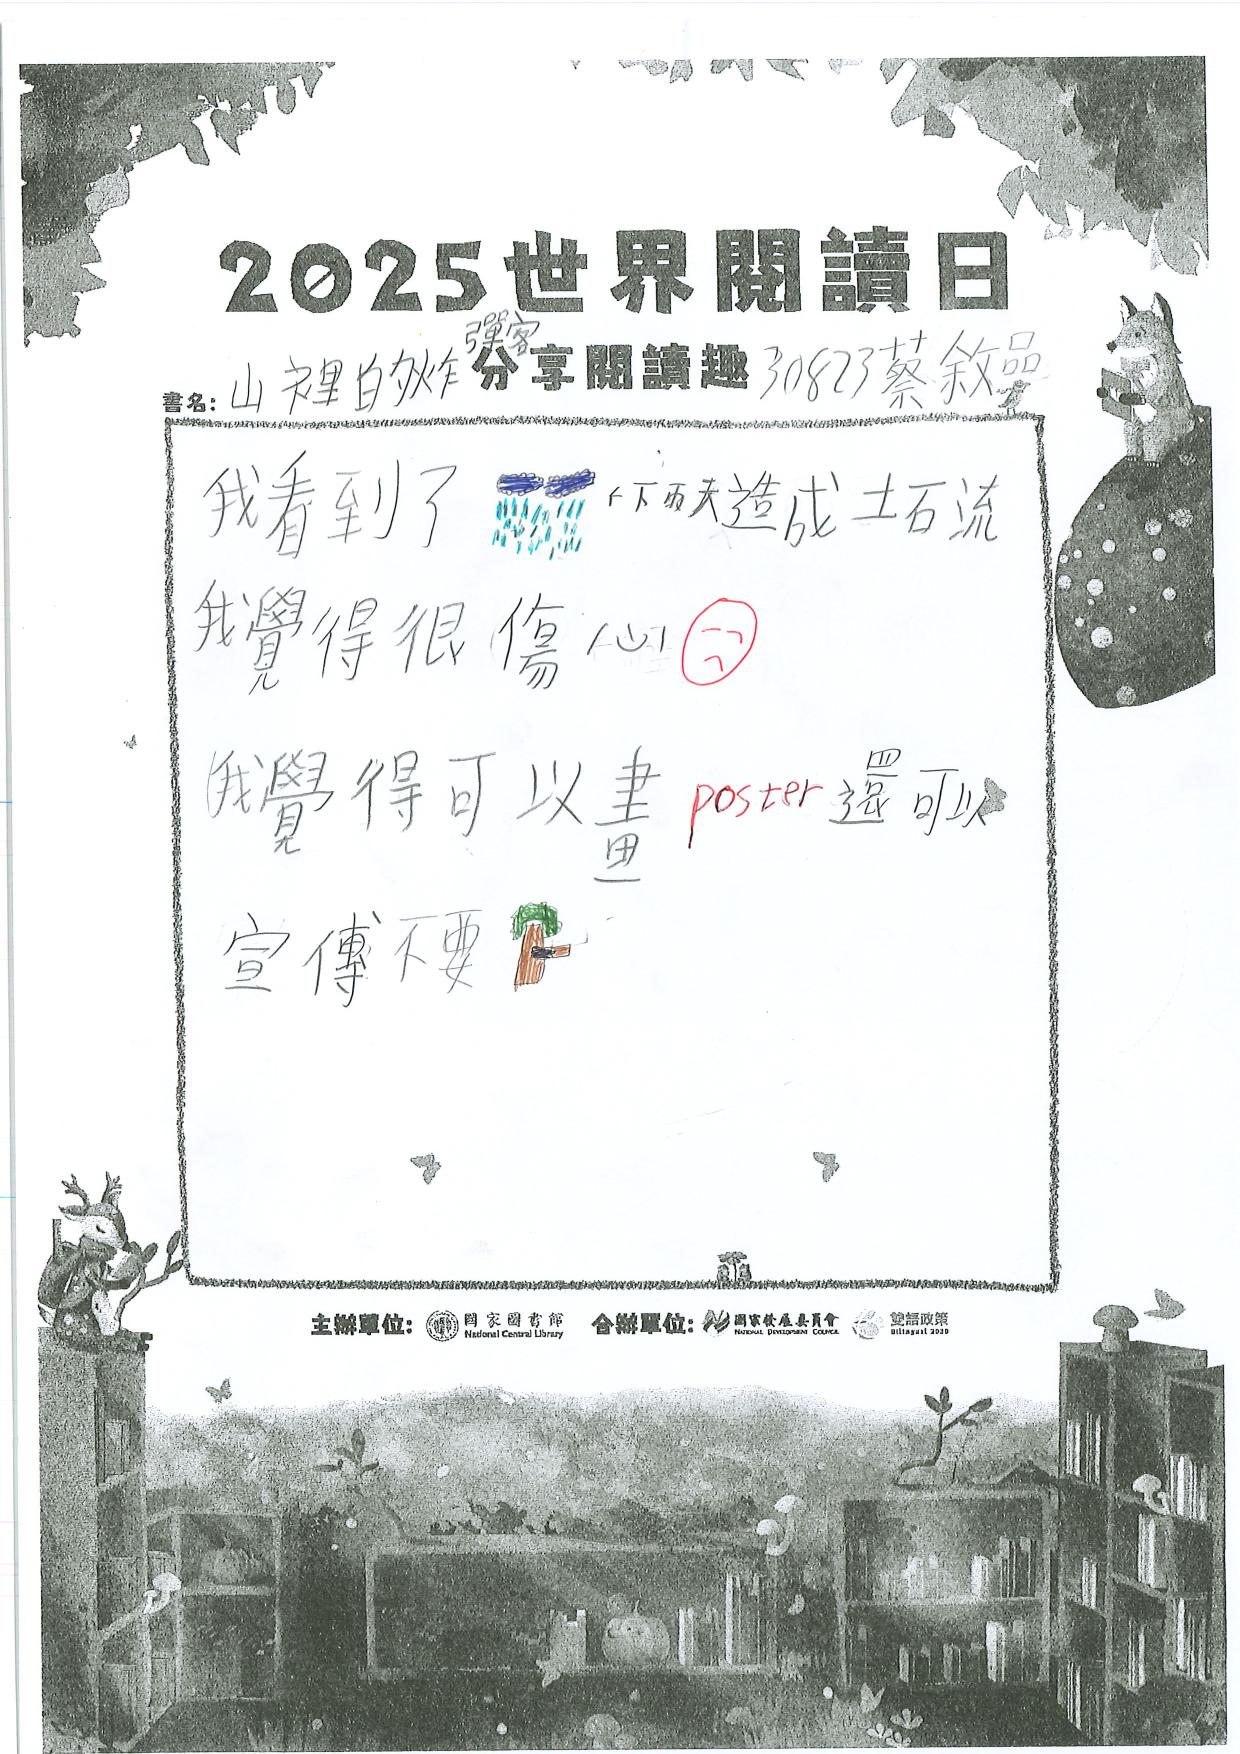 2025世界閱讀日
分享閱讀趣
書名: 山裡的炸彈客 30823蔡敘品
我看到了 下雨天造成土石流
我覺得很傷心
我覺得可以畫 poster 還可以
宣傳不要
主辦單位: 國家圖書館 National Central Library 合辦單位: 國家發展委員會 NATIONAL DEVELOPMENT COUNCIL 雙語政策 Bilingual 2030